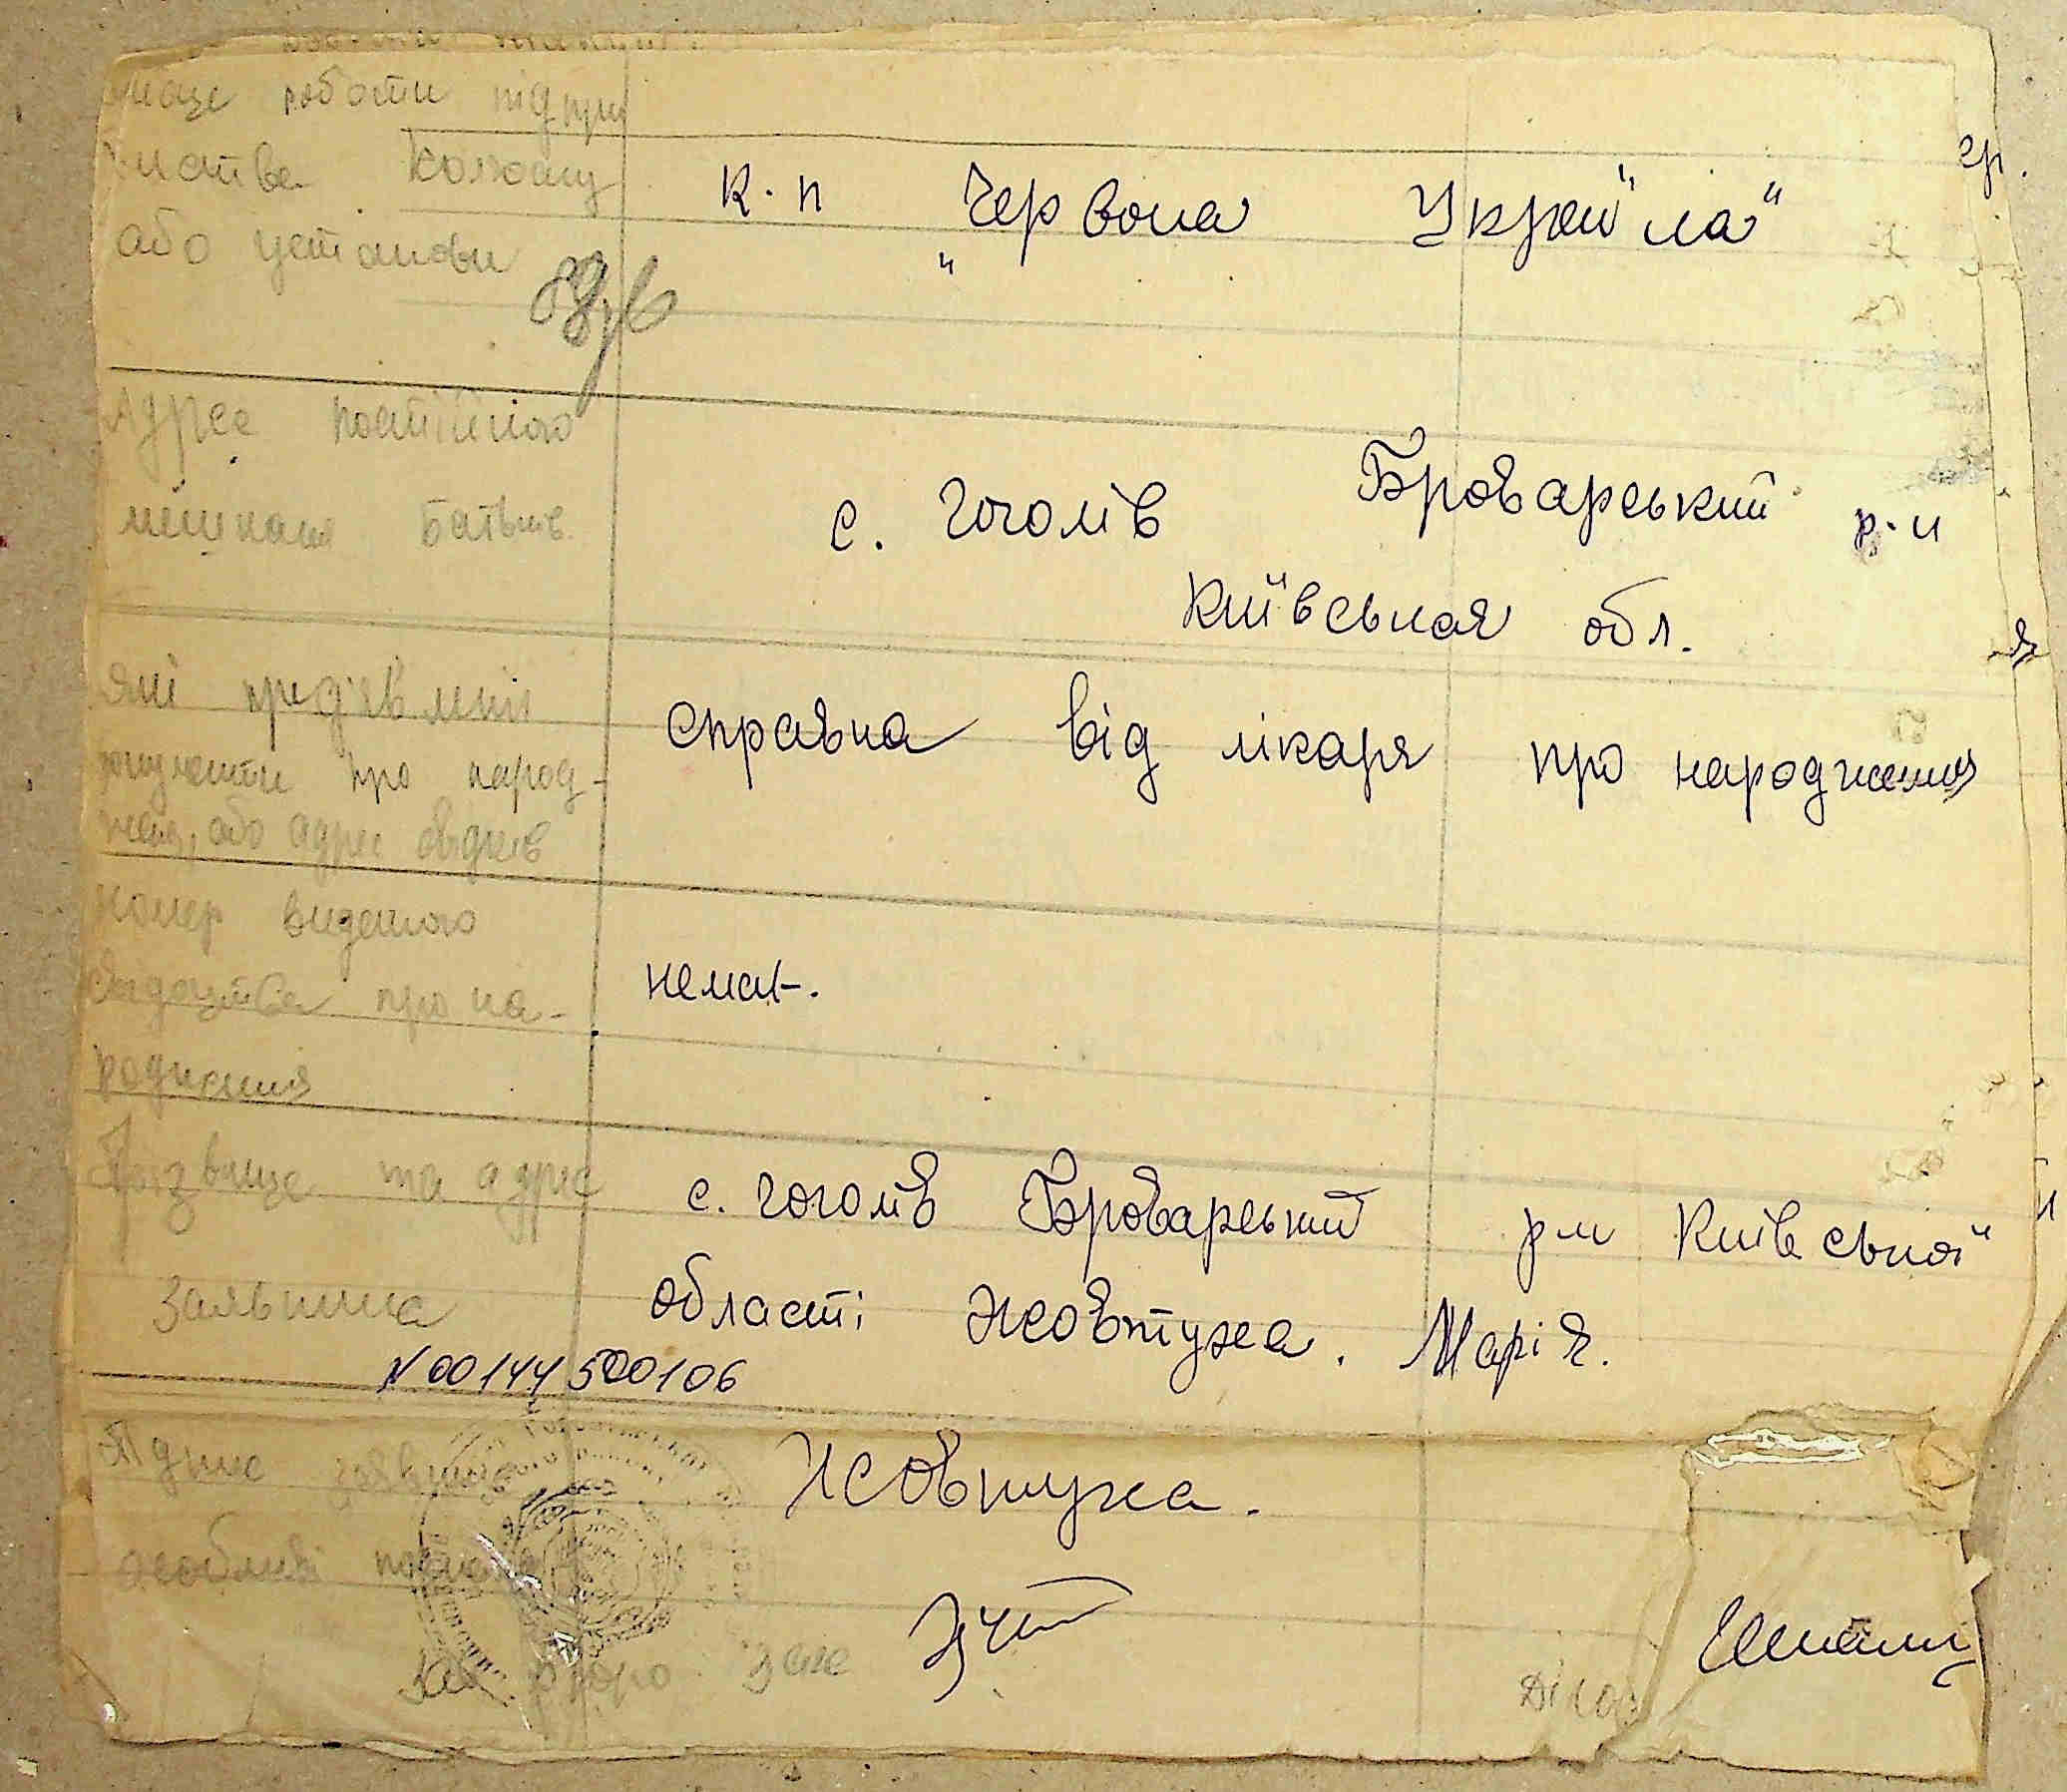 місце роботи підпри
колхозу
або установи
к-п „Червона Україна"
гр.
Адрес постійного
мешканя батьків
с. Гоголів Броварський р-н
Київськая обл.
які пред'явлені
документи про народ-
женя, або адрес свідків
справка від лікаря про народження
номер виданого
свідоцтва про на-
родження
немає.
Прізвище та адрес
заявника
с. Гоголів Броварський рн Київської
області Жовтуха. Марія.
N 00144500106
Підпис заявника
Жовтуха.
особливі
Зав бюро загс
Діловод